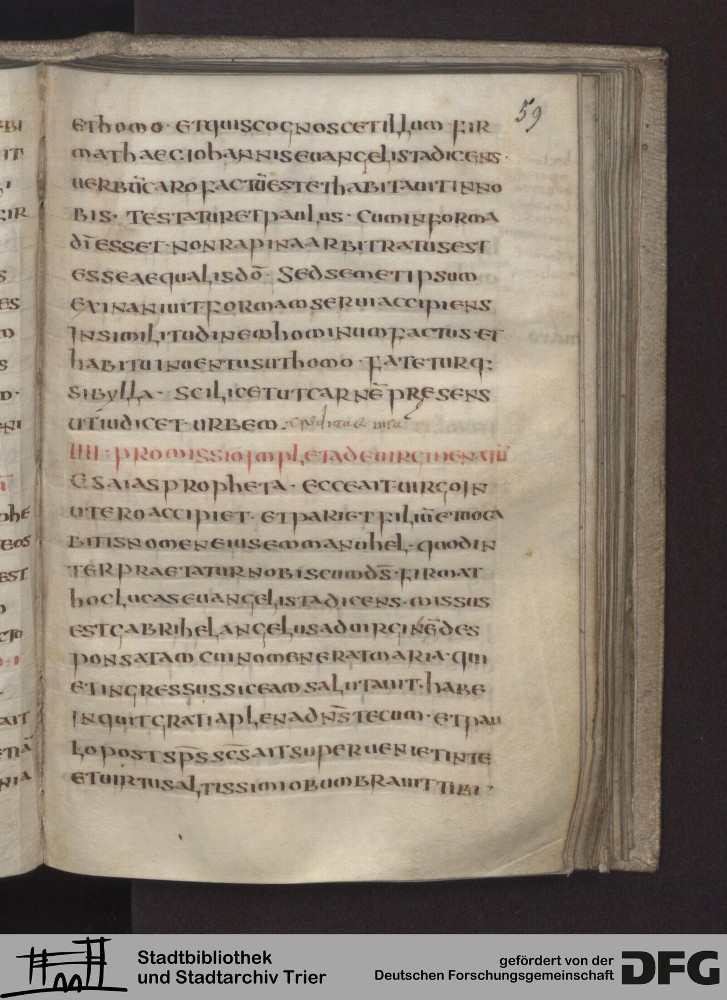 59
ethomo · etquiscognoscetillum · fir
mathaec iohanniseuangelistadicens ·
uerbūcarofactūestethabitauitinno
bis · testaturetpaulus · cuminforma
dīesset · nonrapinaarbitratusest
esseaequalisdō · sedsemetipsum
exinaniuitformamseruiaccipiens
insimilitudinemhominumfactus · et
habituinuentusuthomo · fateturq;
sibylla · scilicetutcarnēpresens
utiudicet · urbem ·
IIII · promissioimpletadeuirginenatū
esaiaspropheta · ecceaituirgoin
uteroaccipiet · etparietfiliūetuoca
bitisnomeneiusemmanuhel · quodin
terpraetaturnobiscumds̄ · firmat
hoclucaseuangelistadicens · missus
estgabrihelangelusaduirginēdes
ponsatamcuinomeneratmaria · qui
etingressussiceamsalutauit · habe
inquitgratiaplenadns̄tecum · etpau
lopostsps̄scs̄aitsuperuenietinte
etuirtusaltissimiobumbrauittibi ·
Stadtbibliothek
und Stadtarchiv Trier
gefördert von der
Deutschen Forschungsgemeinschaft
DFG